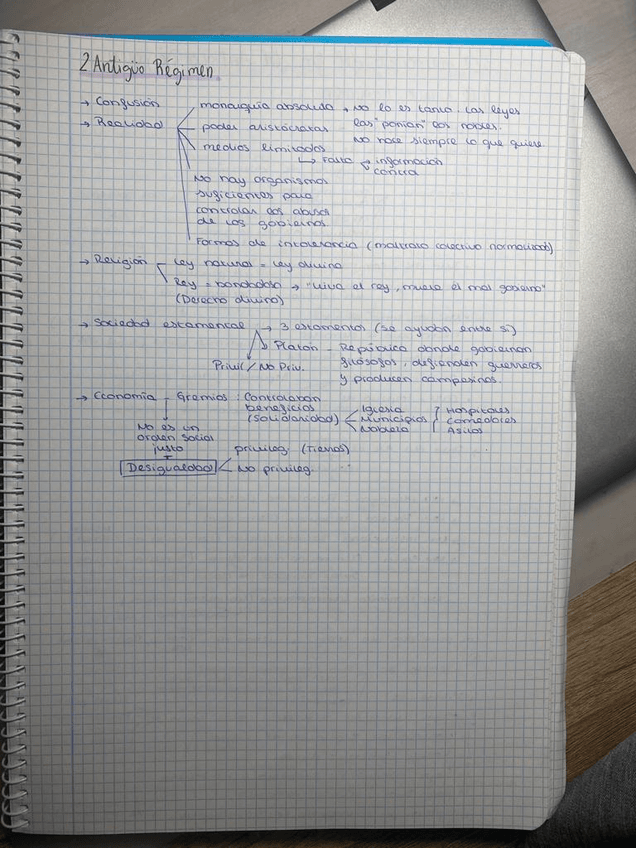 2 Antigüo Régimen
→ Confusión
→ Realidad
monarquía absoluta → No lo es tanto. Las leyes
las "ponían" los nobles.
No hace siempre lo que quiere.
poder aristócratas
medios limitados
↳ Falta → información
control
No hay organismos
suficientes para
controlar los abusos
de los gobiernos
Formas de intolerancia (maltrato colectivo normalizado)
→ Religión - Ley natural = Ley divina
Rey = bondadoso → "Viva el rey, muera el mal gobierno"
(Derecho divino)
→ Sociedad estamental → 3 estamentos (se ayudan entre sí)
Platón - República donde gobiernan
filósofos, defienden guerreros
y producen campesinos.
Privil / No Priv.
→ Economía - Gremios: Controlaban
beneficios
(Solidaridad)
Iglesia
Municipios
Nobleza
Hospitales
Comedores
Asilos
No es un
orden social
justo
Desigualdad
privileg. (Tierras)
No privileg.